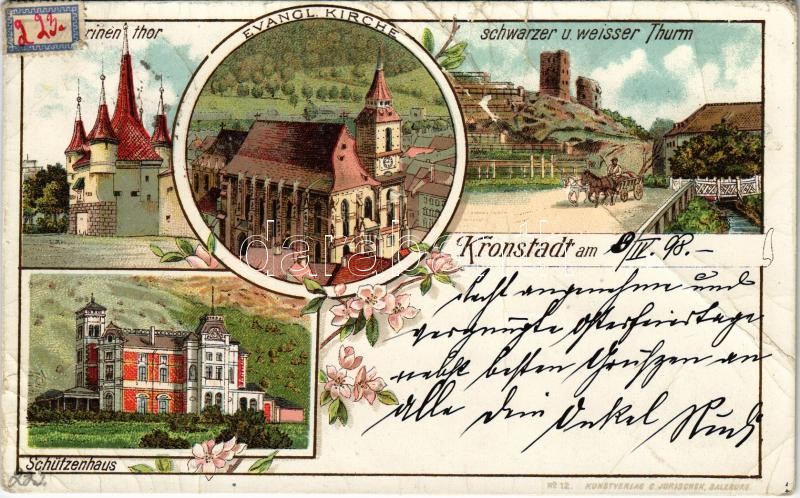 223.
rinen thor
EVANGL. KIRCHE
schwarzer u. weisser Thurm
darabanth
Kronstadt am 9/IV. 98.-
Recht angenehme und
vergnügte Osterfeiertage
nebst besten Grüßen an
alle Dein Onkel Rudi
Schützenhaus
No 12. KUNSTVERLAG C. JURISCHEK, SALZBURG